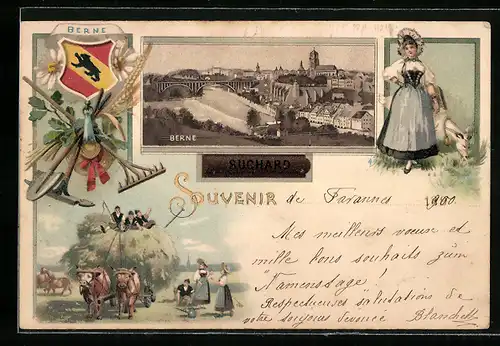 BERNE
BERNE
SUCHARD
SOUVENIR de 1900
Mes meilleurs voeux et
mille bons souhaits zum
"Namenstage"!
Respectueuses salutations de
votre toujours devouée Blanche